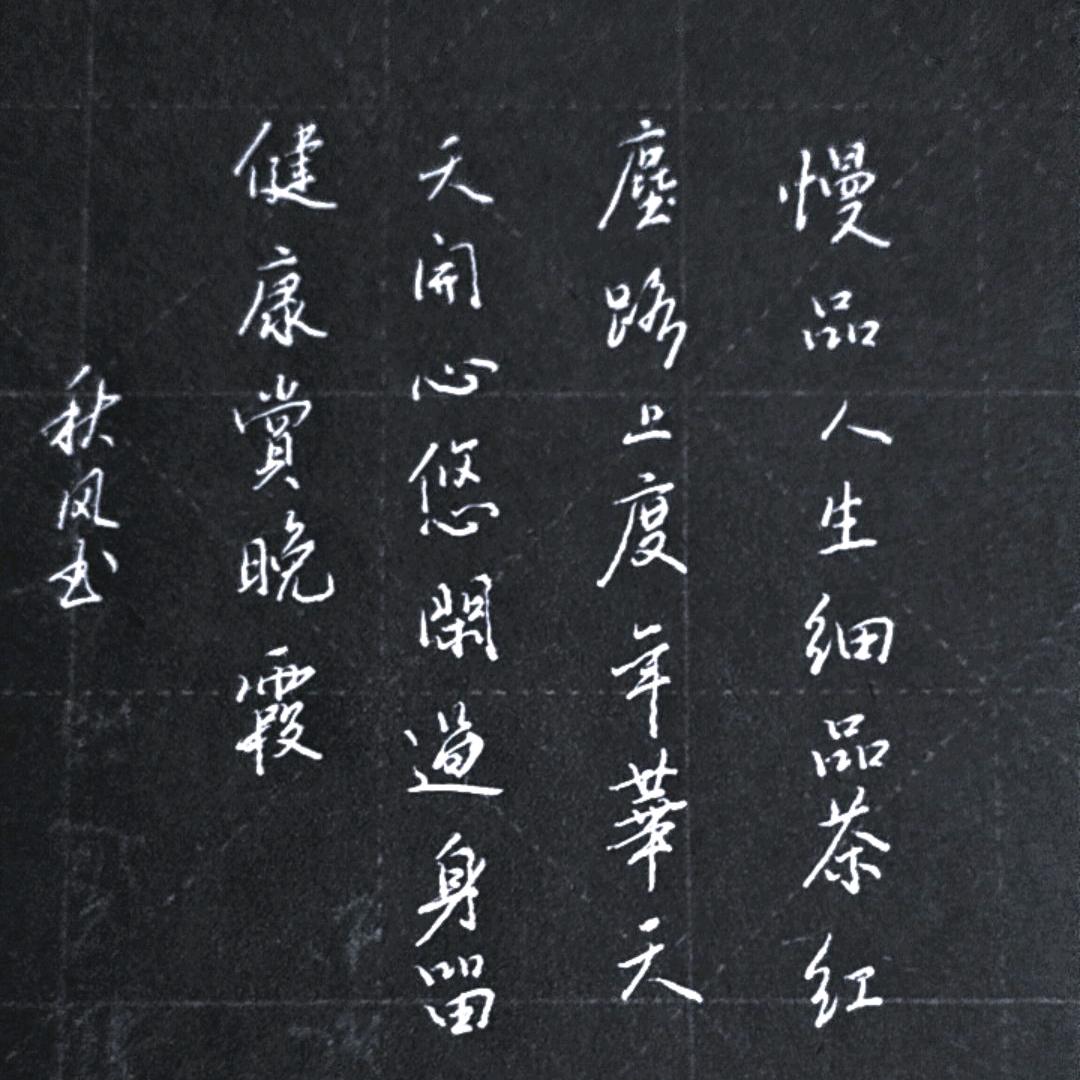 慢品人生细品茶红
塵路上度年華天
天開心悠閑過身留
健康賞晚霞
秋风书